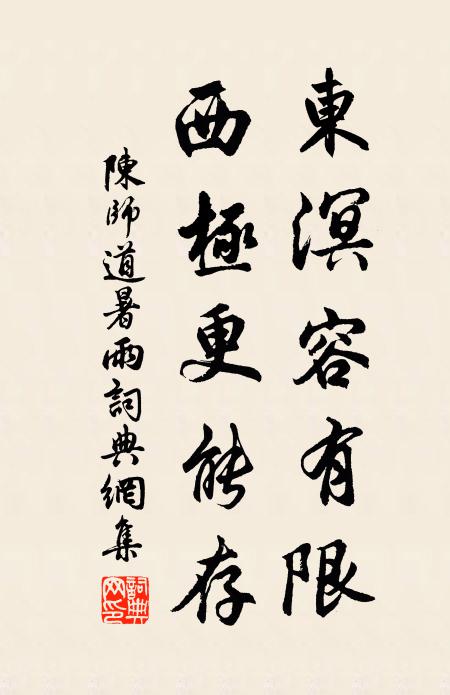 東溟容有限
西極更能存
陳師道暑雨詞典網集
詞典網印